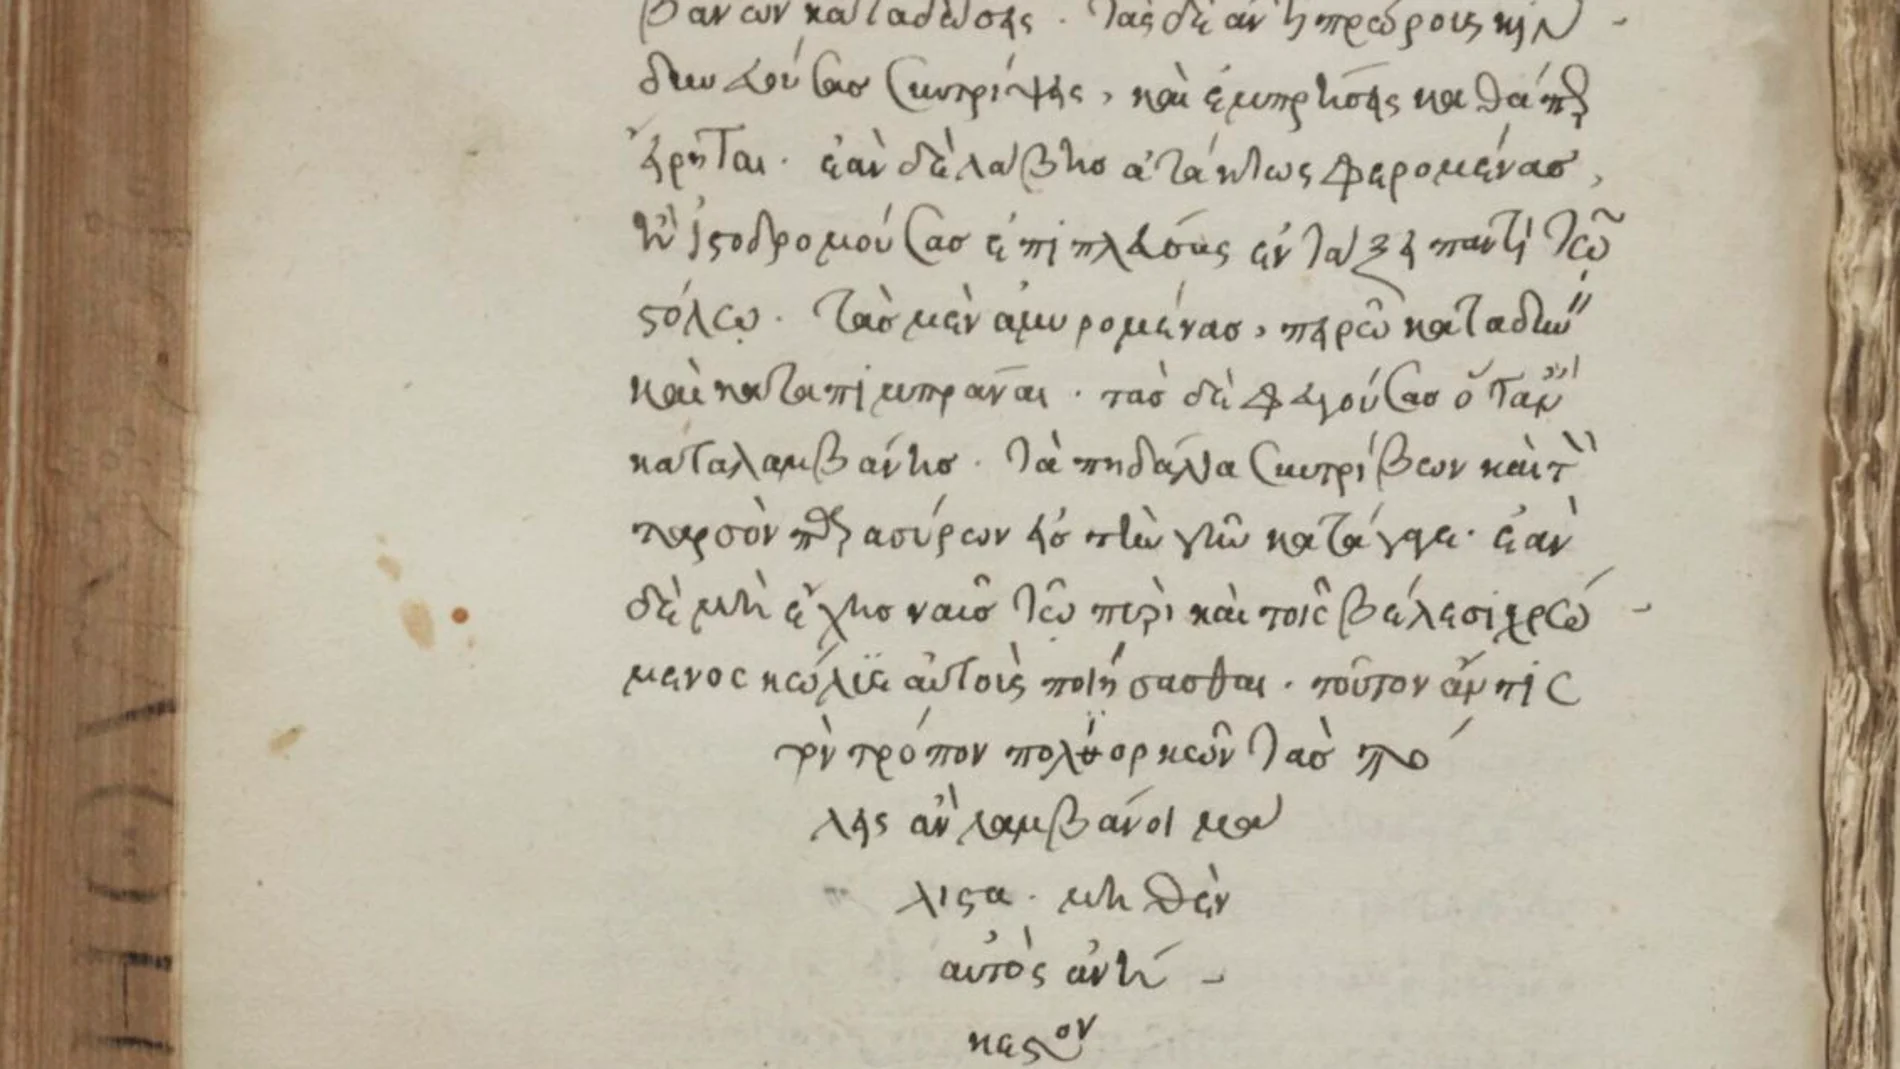 βάνων καταδύσεις. τὰς δὲ ἀντιπρώρους κιν
δυνευούσας συντρίψεις, καὶ ἐμπρήσεις καθάπερ
εἴρηται. ἐὰν δὲ λάβης ἀτάκτως φερομένας,
ἢ ἰσοδρομούσας ἐπιπλεύσεις ἐν τάξει παντὶ τῶ
στόλῳ. τὰς μὲν ἀμυρομένας, πειρῶ καταδύειν
καὶ καταπιμπράναι. τὰς δὲ φευγούσας ὅταν
καταλαμβάνης. τὰ πηδάλια συντρίβων καὶ τὸν
ταρσὸν παρασύρων εἰς τὴν γῆν κατάγαγε. ἐὰν
δὲ μὴ ἔχης ναῦς τῶ πυρὶ καὶ τοῖς βέλεσι χρώ
μενος κώλυε αὐτοὺς ποιήσασθαι. τοῦτον ἄν τις
τὸν τρόπον πολιορκῶν τὰς πό
λεις ἂν λαμβάνοι μά
λιστα. μηθὲν
αὐτὸς ἀνή
κεστον